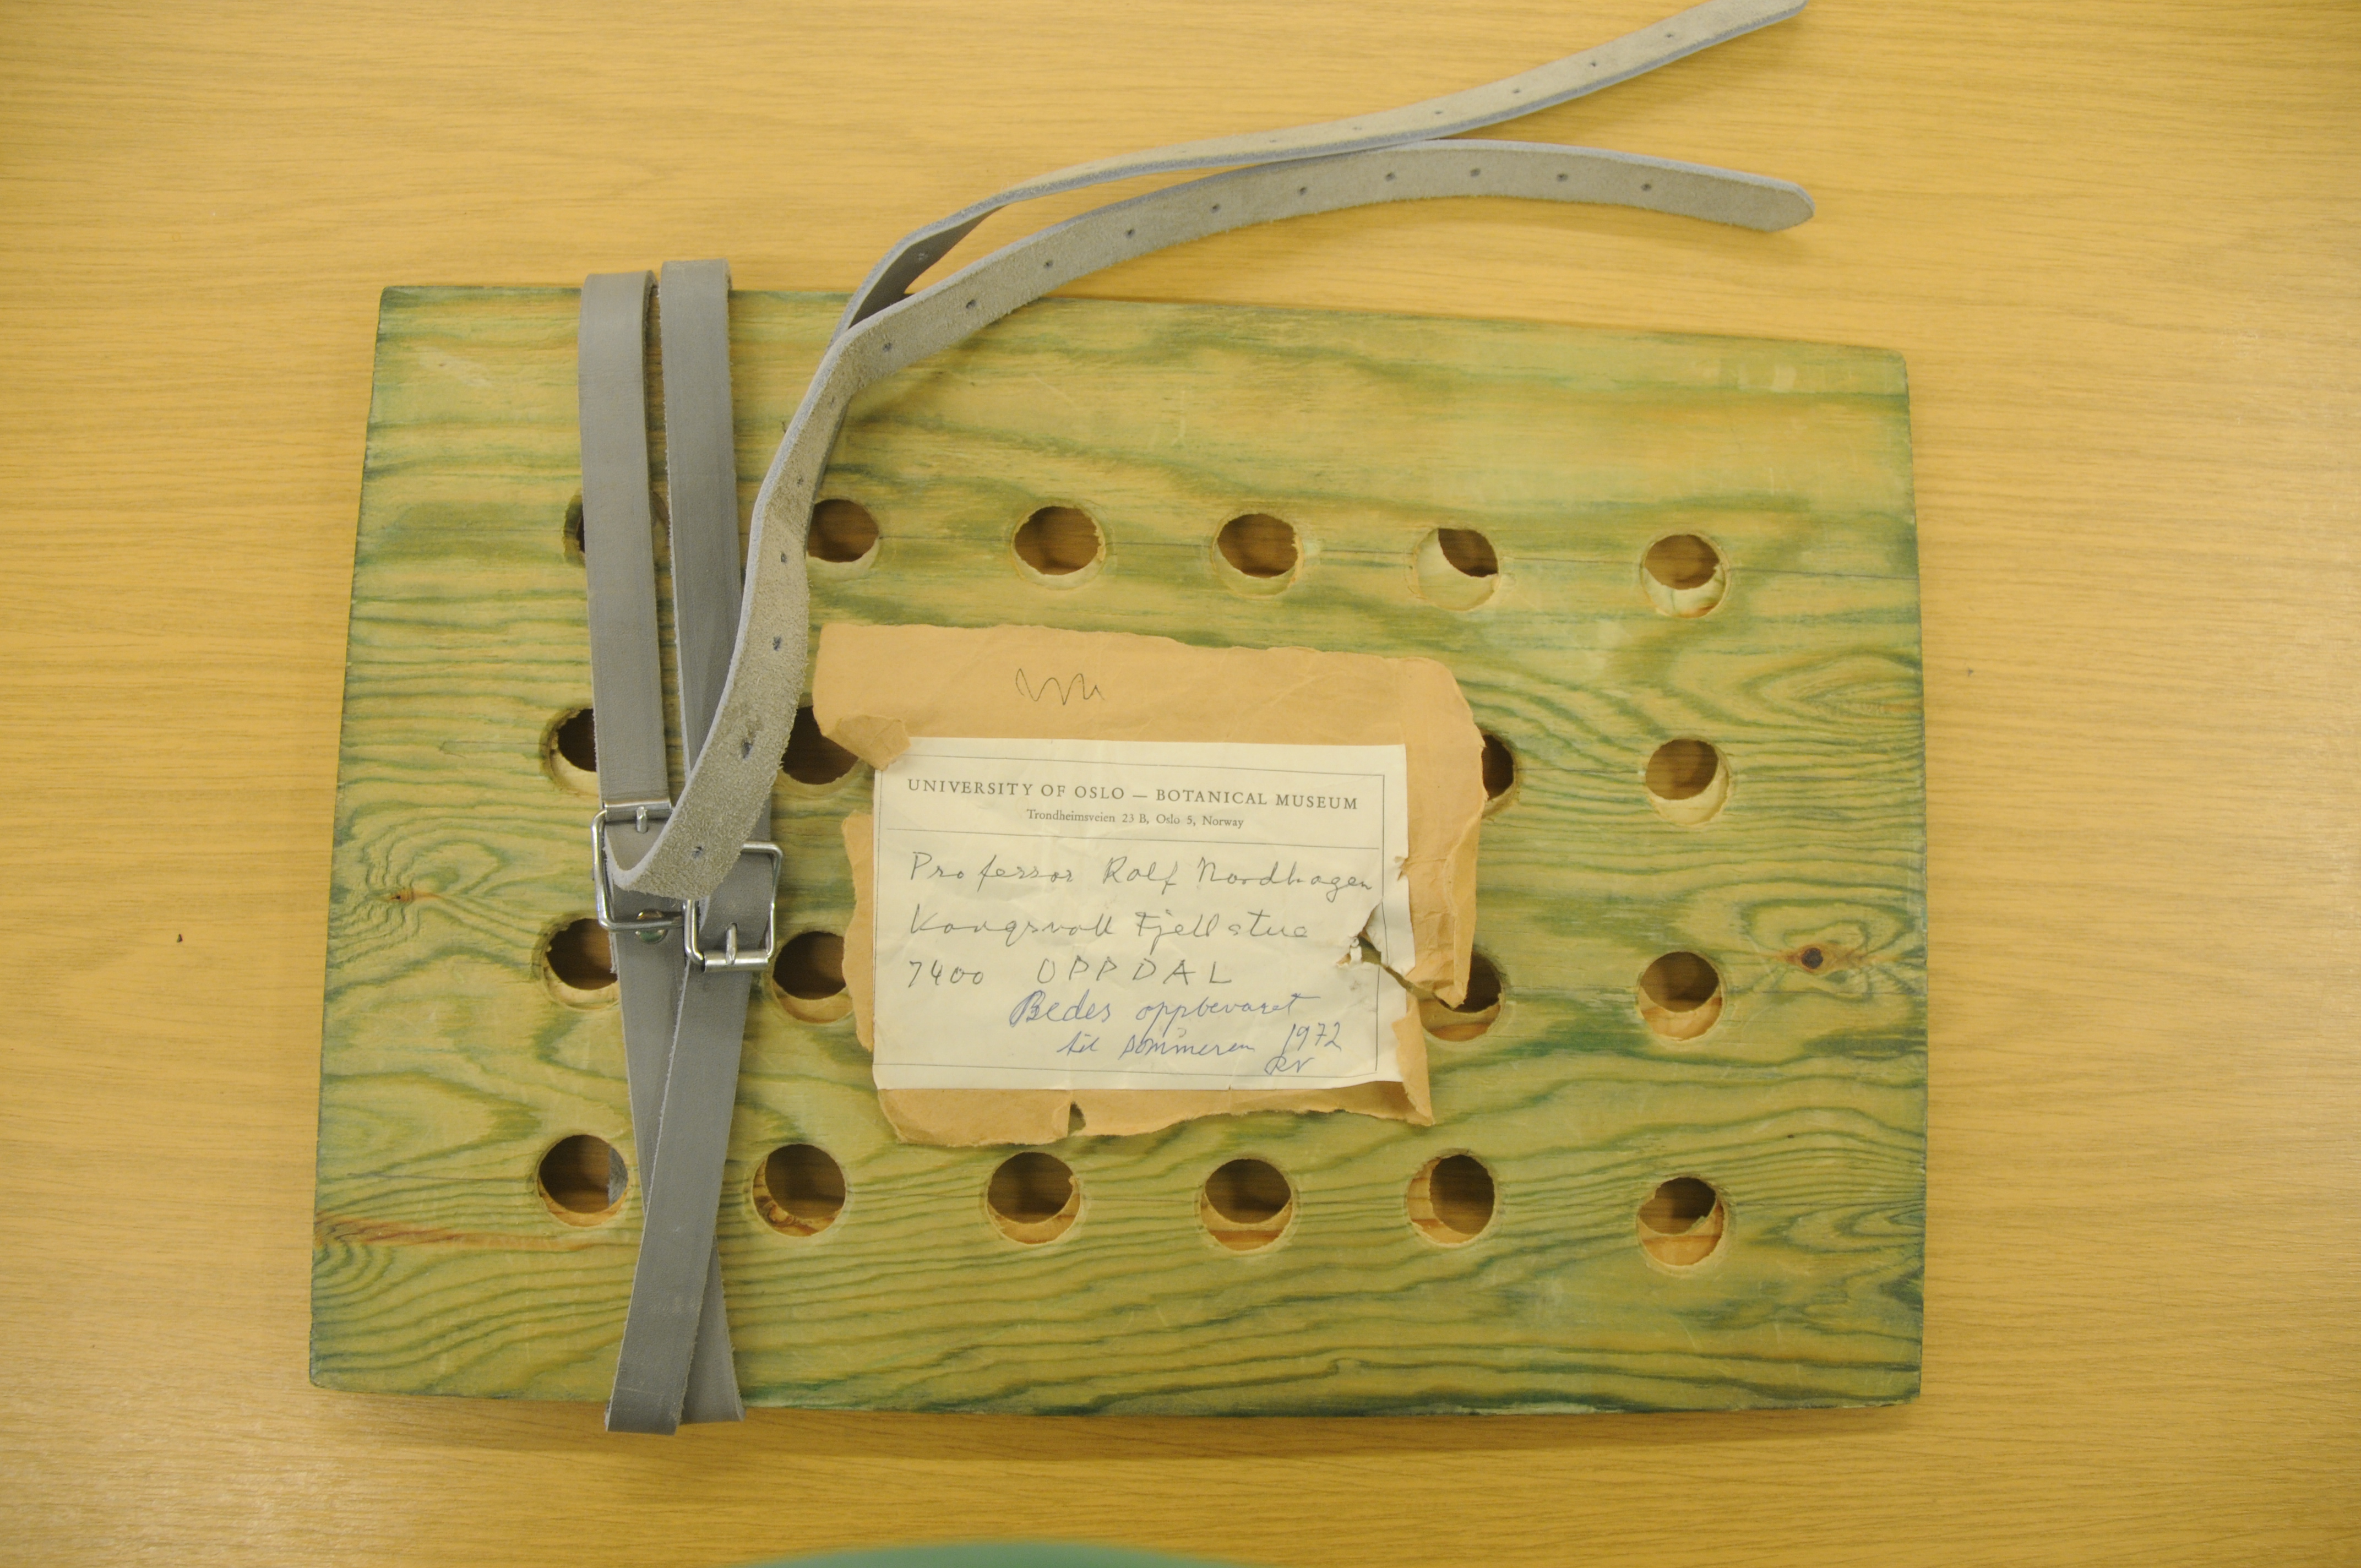 UNIVERSITY OF OSLO — BOTANICAL MUSEUM
Trondheimsveien 23 B, Oslo 5, Norway
Professor Rolf Nordhagen
Kongsvoll Fjellstue
7400 OPPDAL
Bedes oppbevaret
til sommeren 1972
RN